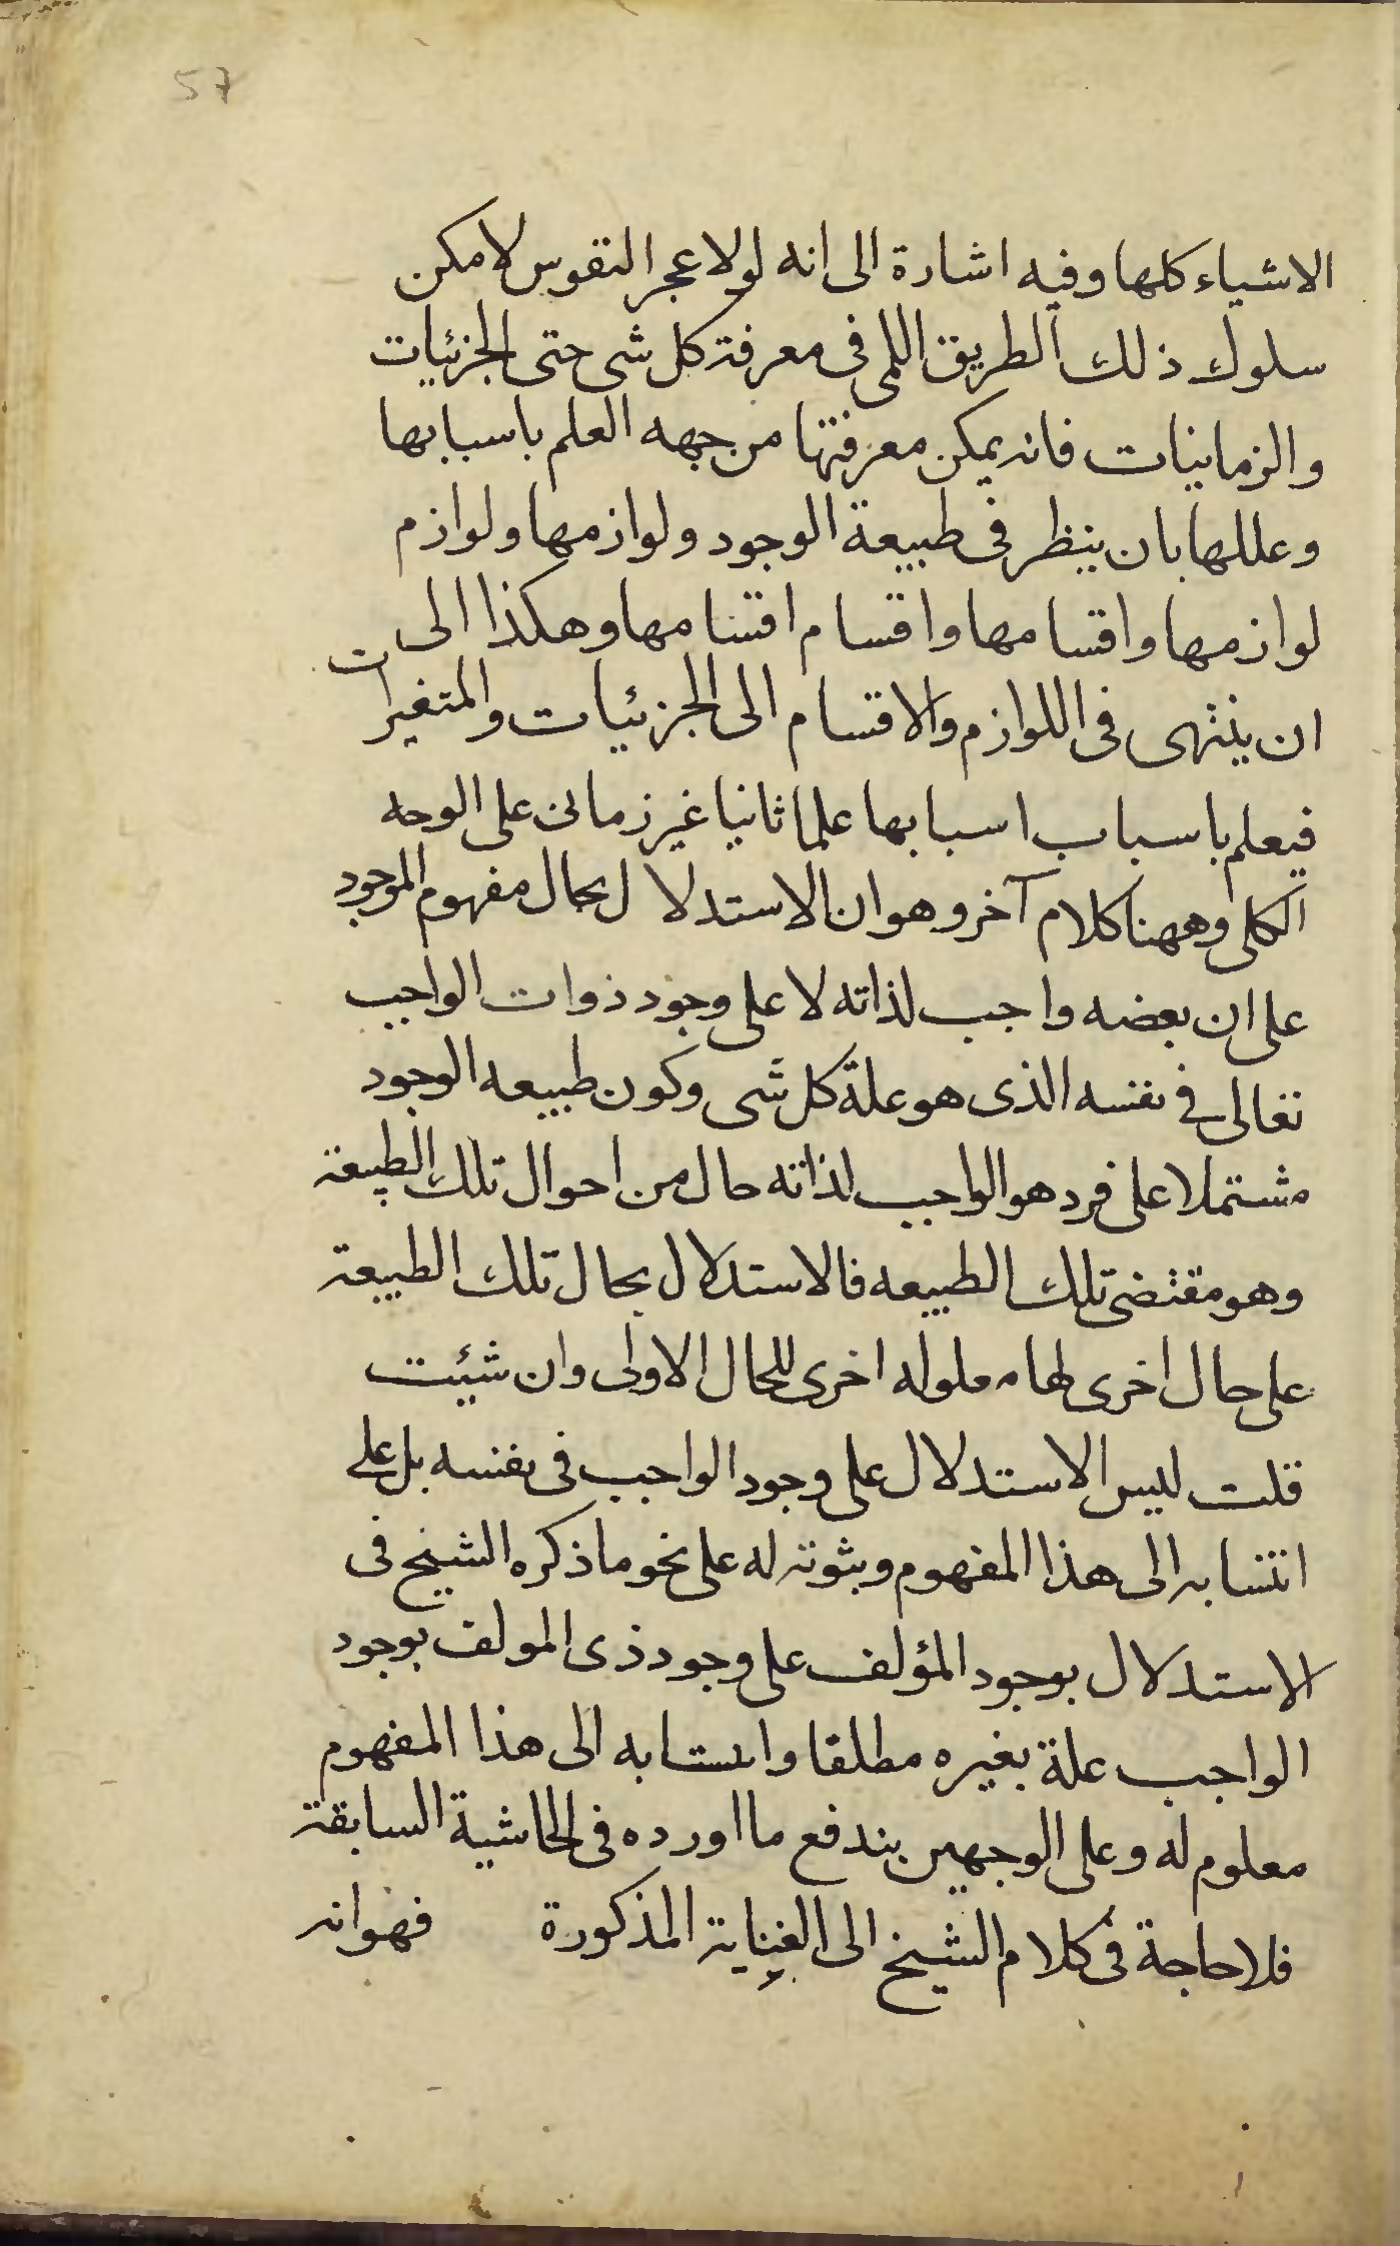 57
الاشياء كلها وفيه اشارة الى انه لولا عجر النقوس لامكن
سلوك ذلك الطريق اللمى فى معرفة كل شى حتى الجزئيات
والزمانيات فانه يمكن معرفتها من جهه العلم باسبابها
وعللها بان ينظر فى طبيعة الوجود ولوازمها ولوازم
لوازمها واقسامها واقسام اقسامها وهكذا الى
ان ينتهى فى اللوازم والاقسام الى الجزئيات والمتغيرات
فيعلم باسباب اسبابها علما ثانيا غير زمانى على الوجه
الكلى وههنا كلام آخر وهو ان الاستدلال بحال مفهوم الموجود
على ان بعضه واجب لذاته لا على وجود ذوات الواجب
تعالى فى نفسه الذى هو علة كل شى وكون طبيعه الوجود
مشتملا على فرد هو الواجب لذاته حال من احوال تلك الطبيعة
وهو مقتضى تلك الطبيعه فالاستدلال بحال تلك الطبيعة
على حال اخرى لها ملوله اخرى للحال الاولى وان شئت
قلت ليس الاستدلال على وجود الواجب فى نفسه بل على
انتسابه الى هذا المفهوم وبثوته له على نحو ما ذكره الشيخ فى
الاستدلال بوجود المؤلف على وجود ذى المولف بوجود
الواجب علة بغيره مطلقا وانتسابه الى هذا المفهوم
معلوم له وعلى الوجهين يندفع ما اورده فى الحاشية السابقة
فلا حاجة فى كلام الشيخ الى العناية المذكورة فهو انه